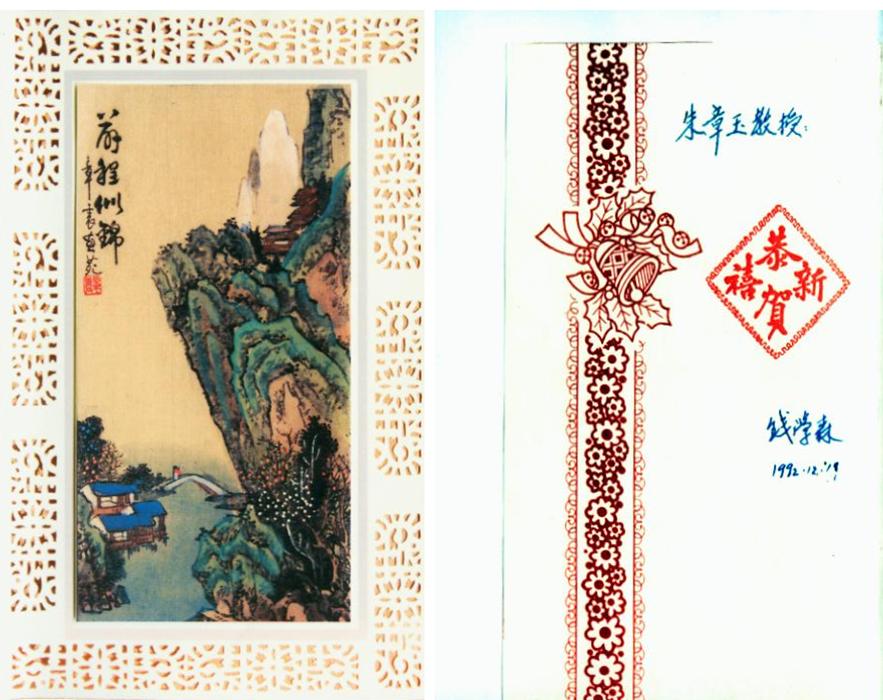 前程似锦
朱章玉教授:
恭贺新禧
钱学森
1992.12.19